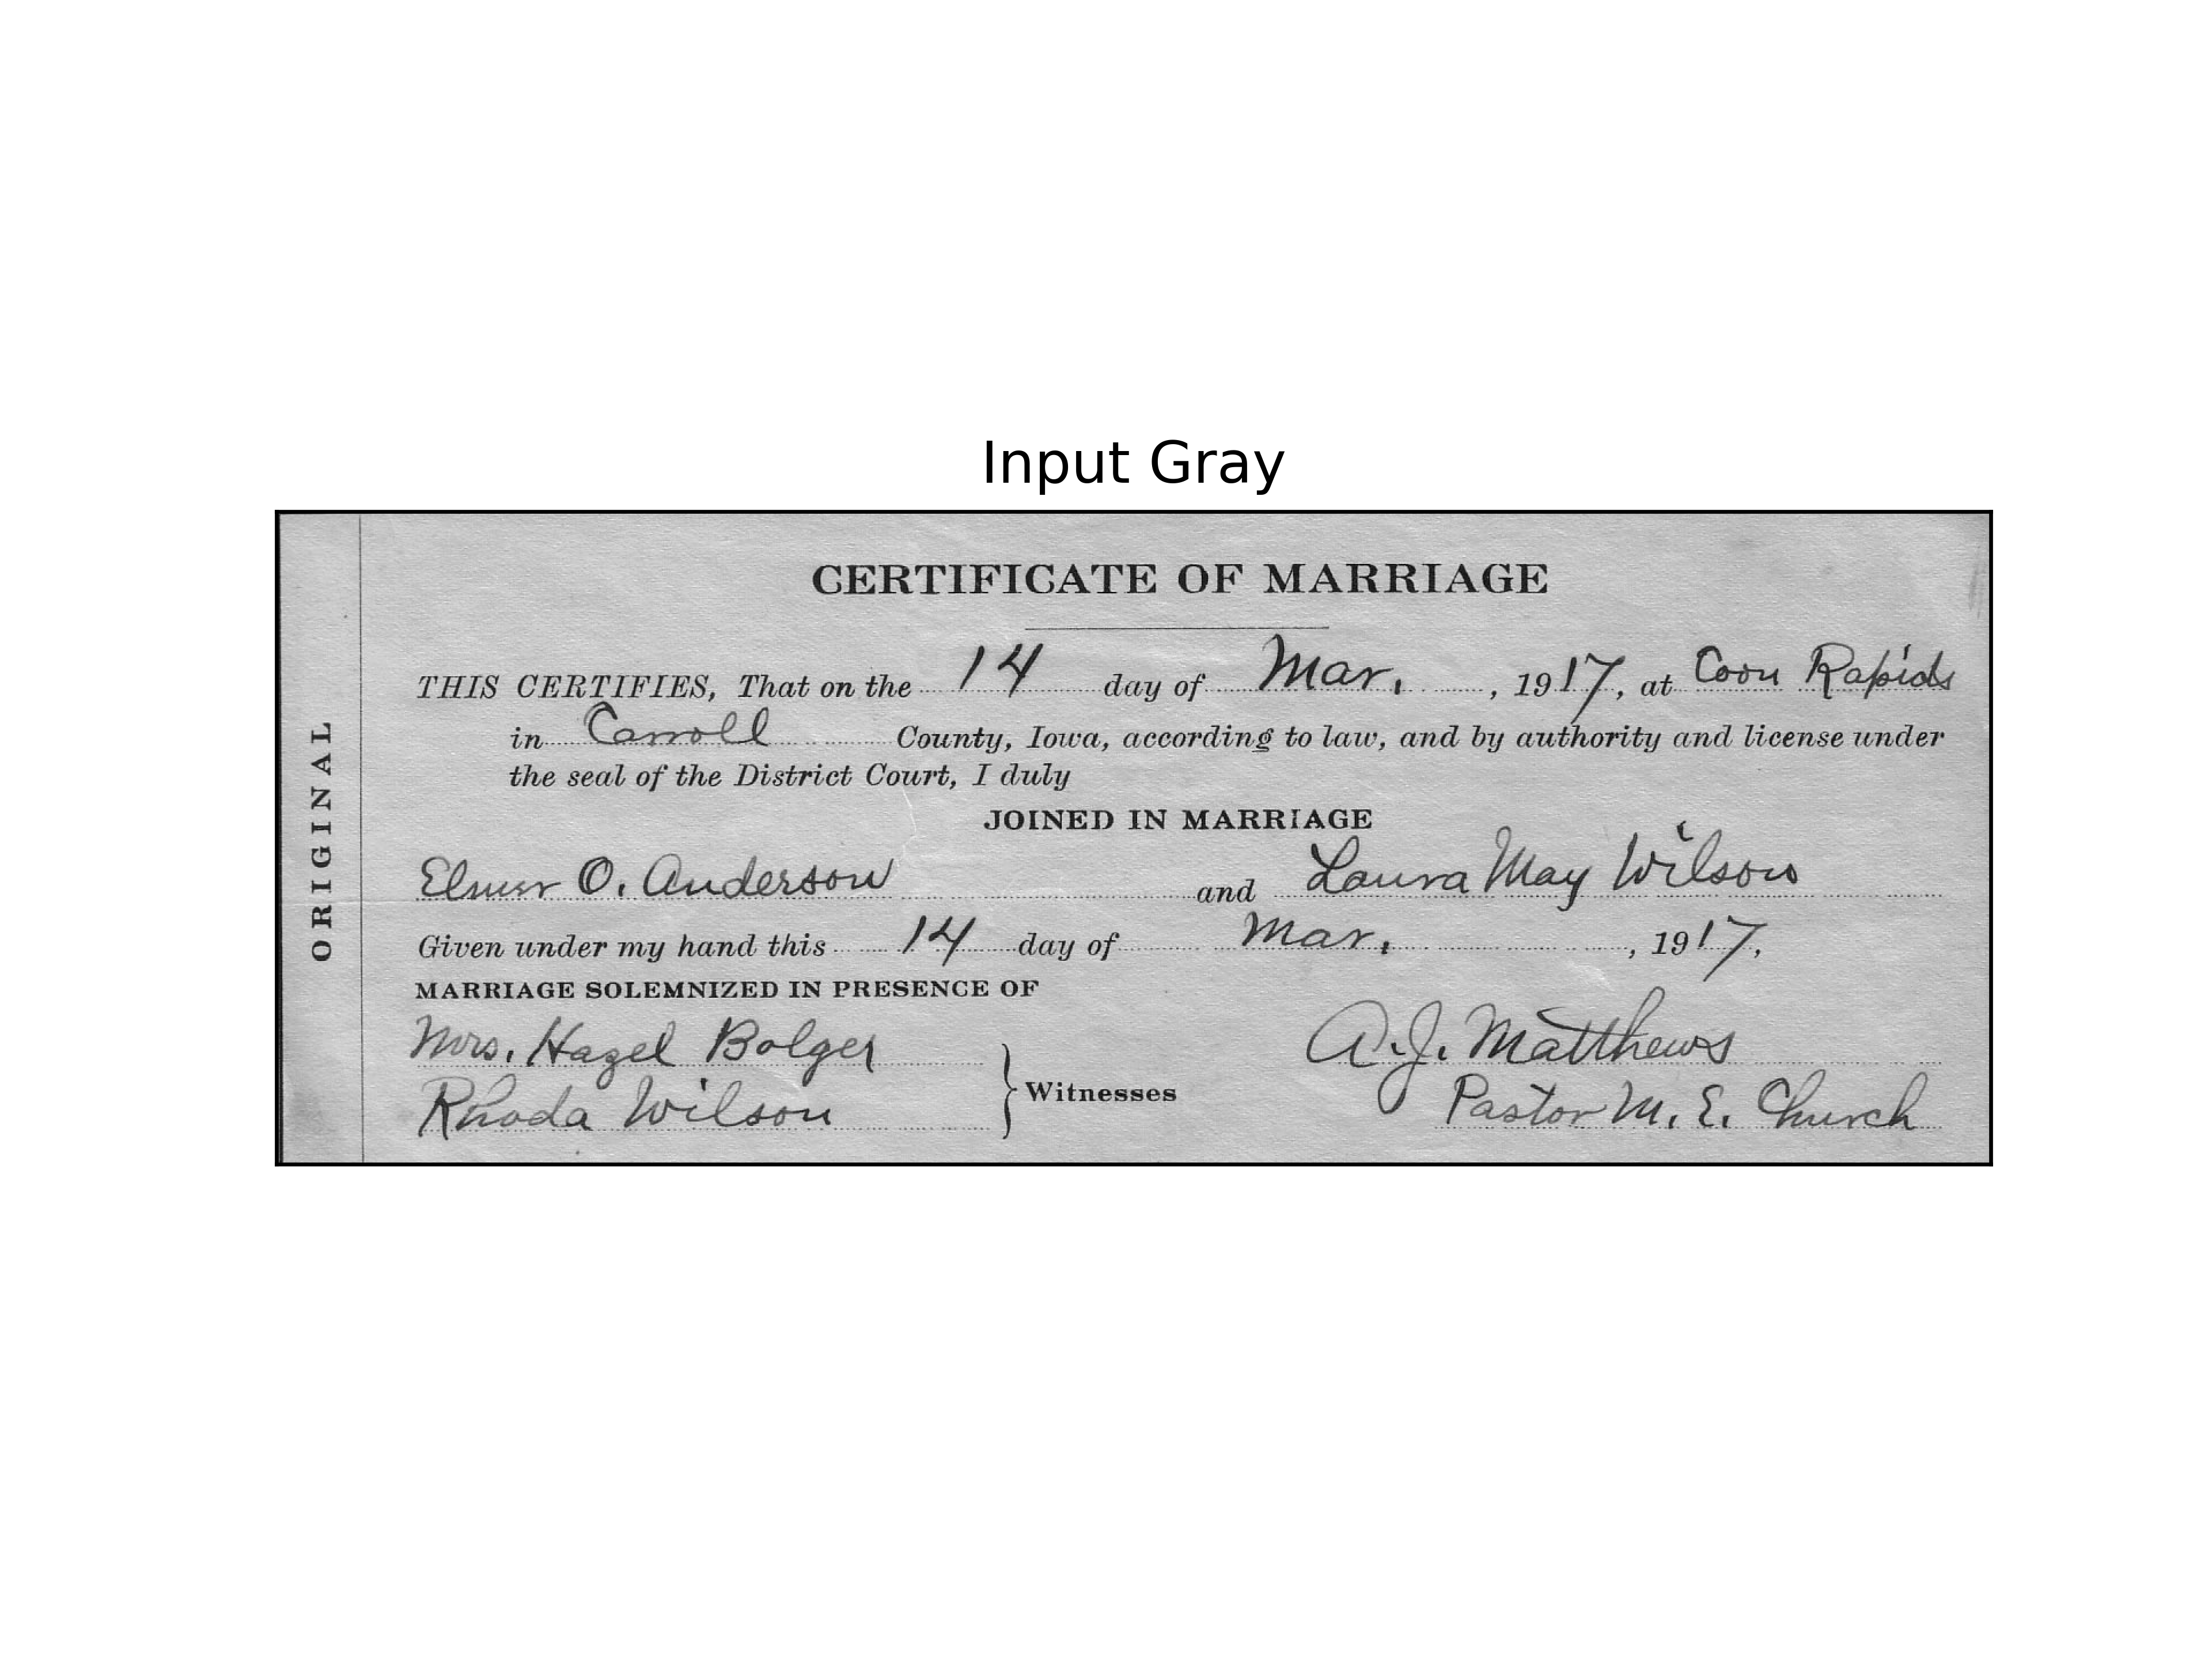 Input Gray
CERTIFICATE OF MARRIAGE
THIS CERTIFIES, That on the 14 day of Mar. , 1917, at Coon Rapids
in Carroll County, Iowa, according to law, and by authority and license under
the seal of the District Court, I duly
JOINED IN MARRIAGE
Elmer O. Anderson and Laura May Wilson
Given under my hand this 14 day of Mar. , 1917,
MARRIAGE SOLEMNIZED IN PRESENCE OF
Mrs. Hazel Bolger
Rhoda Wilson
} Witnesses
A. J. Matthews
Pastor M. E. Church
ORIGINAL